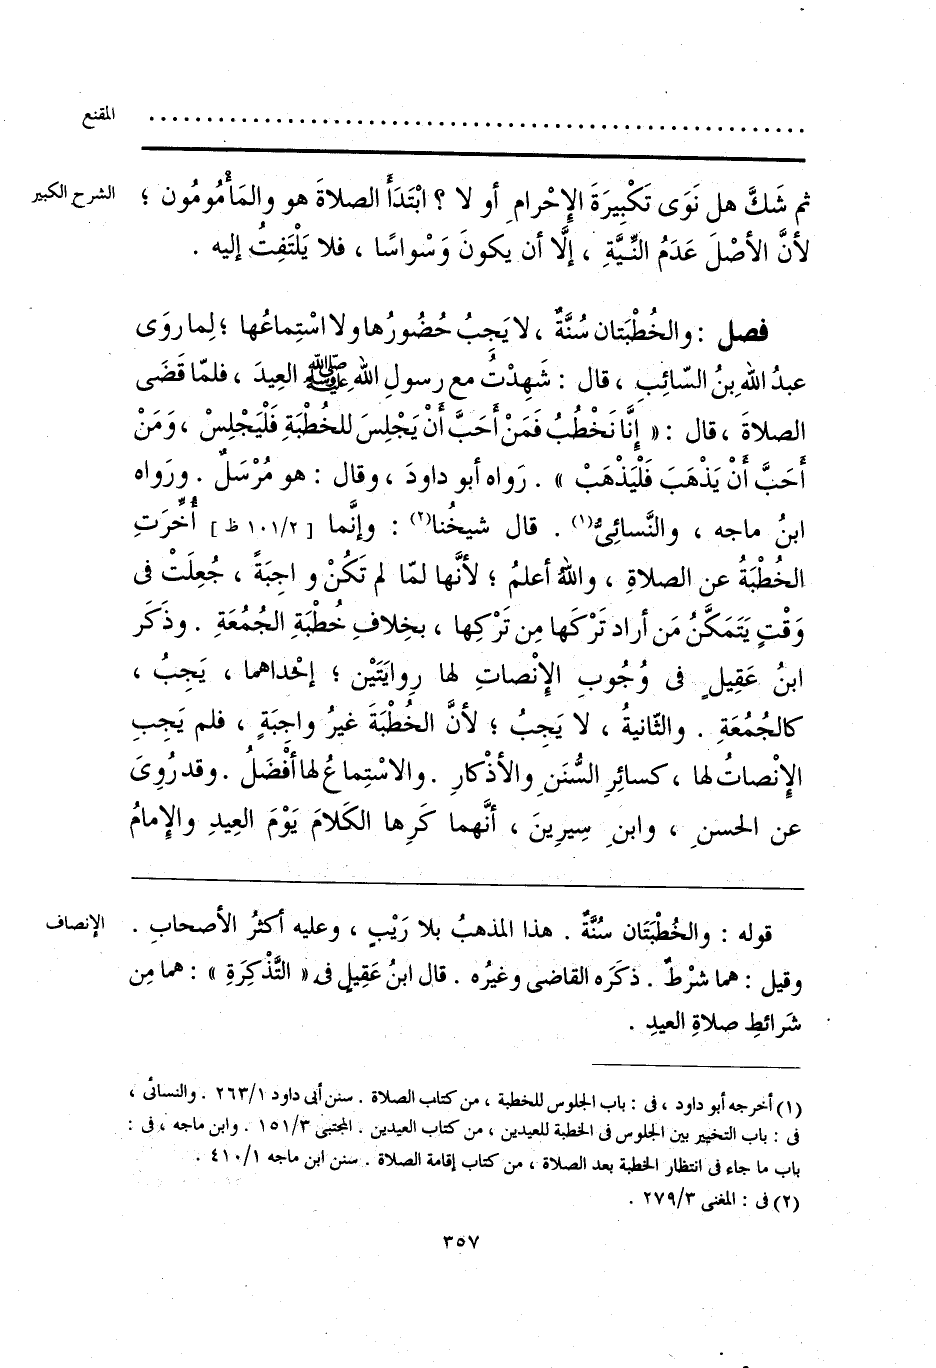 المقنع
. . . . . . . . . . . . . . . . . . . . . . . . . . . . . . . . . . . . . . . . . . . . . . . . . . . . . . . .
الشرح الكبير
ثم شَكَّ هل نَوَى تَكْبِيرَةَ الإِحْرامِ أو لا ؟ ابْتَدَأَ الصلاةَ هو والمَأْمُومُون ؛
لأنَّ الأصْلَ عَدَمُ النِّيَّةِ ، إلَّا أن يكونَ وَسْواسًا ، فلا يَلْتَفِتُ إليه .
فصل : والخُطْبَتان سُنَّةٌ ، لا يَجِبُ حُضُورُها ولا اسْتِماعُها ؛ لِما روَى
عبدُ اللهِ بنُ السّائِبِ ، قال : شَهِدْتُ مع رسولِ اللهِ ﷺ العِيدَ ، فلمّا قَضَى
الصلاةَ ، قال : « إنَّا نَخْطُبُ فَمَنْ أَحَبَّ أَنْ يَجْلِسَ للخُطْبَةِ فَلْيَجْلِسْ ، وَمَنْ
أَحَبَّ أَنْ يَذْهَبَ فَلْيَذْهَبْ » . رَواه أبو داودَ ، وقال : هو مُرْسَلٌ . ورَواه
ابنُ ماجه ، والنَّسائِىُّ(١) . قال شيخُنا(٢) : وإنَّما [ ١٠١/٢ ظ ] أُخِّرَتِ
الخُطْبَةُ عن الصلاةِ ، واللهُ أعلمُ ؛ لأنَّها لمّا لم تَكُنْ واجِبَةً ، جُعِلَتْ فى
وَقْتٍ يَتَمَكَّنُ مَن أراد تَرْكَها مِن تَرْكِها ، بخِلافِ خُطْبَةِ الجُمُعَةِ . وذَكَر
ابنُ عَقِيلٍ فى وُجُوبِ الإِنْصاتِ لها رِوايَتَيْن ؛ إحْداهما ، يَجِبُ ،
كالجُمُعَةِ . والثّانيةُ ، لا يَجِبُ ؛ لأنَّ الخُطْبَةَ غيرُ واجِبَةٍ ، فلم يَجِبِ
الإِنْصاتُ لها ، كسائِرِ السُّنَنِ والأذْكارِ . والاسْتِماعُ لها أفْضَلُ . وقد رُوِىَ
عن الحسنِ ، وابنِ سِيرِينَ ، أنَّهما كَرِها الكَلامَ يَوْمَ العِيدِ والإِمامُ
الإنصاف
قوله : والخُطْبَتَان سُنَّةٌ . هذا المذهبُ بلا رَيْبٍ ، وعليه أكثرُ الأصحابِ .
وقيل : هما شرْطٌ . ذكَره القاضى وغيرُه . قال ابنُ عَقِيلٍ فى « التَّذْكِرَةِ » : هما مِن
شَرائطِ صلاةِ العيدِ .
(١) أخرجه أبو داود ، فى : باب الجلوس للخطبة ، من كتاب الصلاة . سنن أبى داود ٢٦٣/١ . والنسائى ،
فى : باب التخيير بين الجلوس فى الخطبة للعيدين ، من كتاب العيدين . المجتبى ١٥١/٣ . وابن ماجه ، فى :
باب ما جاء فى انتظار الخطبة بعد الصلاة ، من كتاب إقامة الصلاة . سنن ابن ماجه ٤١٠/١ .
(٢) فى : المغنى ٢٧٩/٣ .
٣٥٧